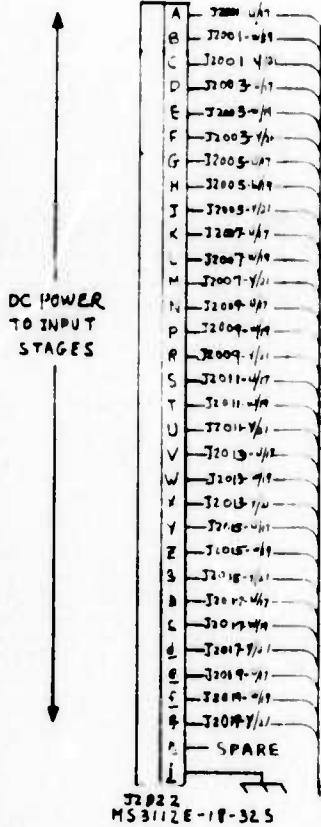 A J2001 U/17
B J2001-U/19
C J2001 Y/21
D J2003-U/17
E J2003-U/19
F J2003-Y/21
G J2005-U/17
H J2005-U/19
J J2005-Y/21
K J2007-U/17
L J2007-U/19
M J2007-Y/21
DC POWER
TO INPUT
STAGES
N J2009-U/17
P J2009-U/19
R J2009-Y/21
S J2011-U/17
T J2011-U/19
U J2011-Y/21
V J2013-U/18
W J2013-U/19
X J2013-Y/21
Y J2015-U/17
Z J2015-U/19
J2015-Y/21
J2017-U/17
J2017-U/19
d J2017-Y/21
e J2019-U/17
f J2019-U/19
J2019-Y/21
SPARE
j
J2022
MS3112E-18-32S